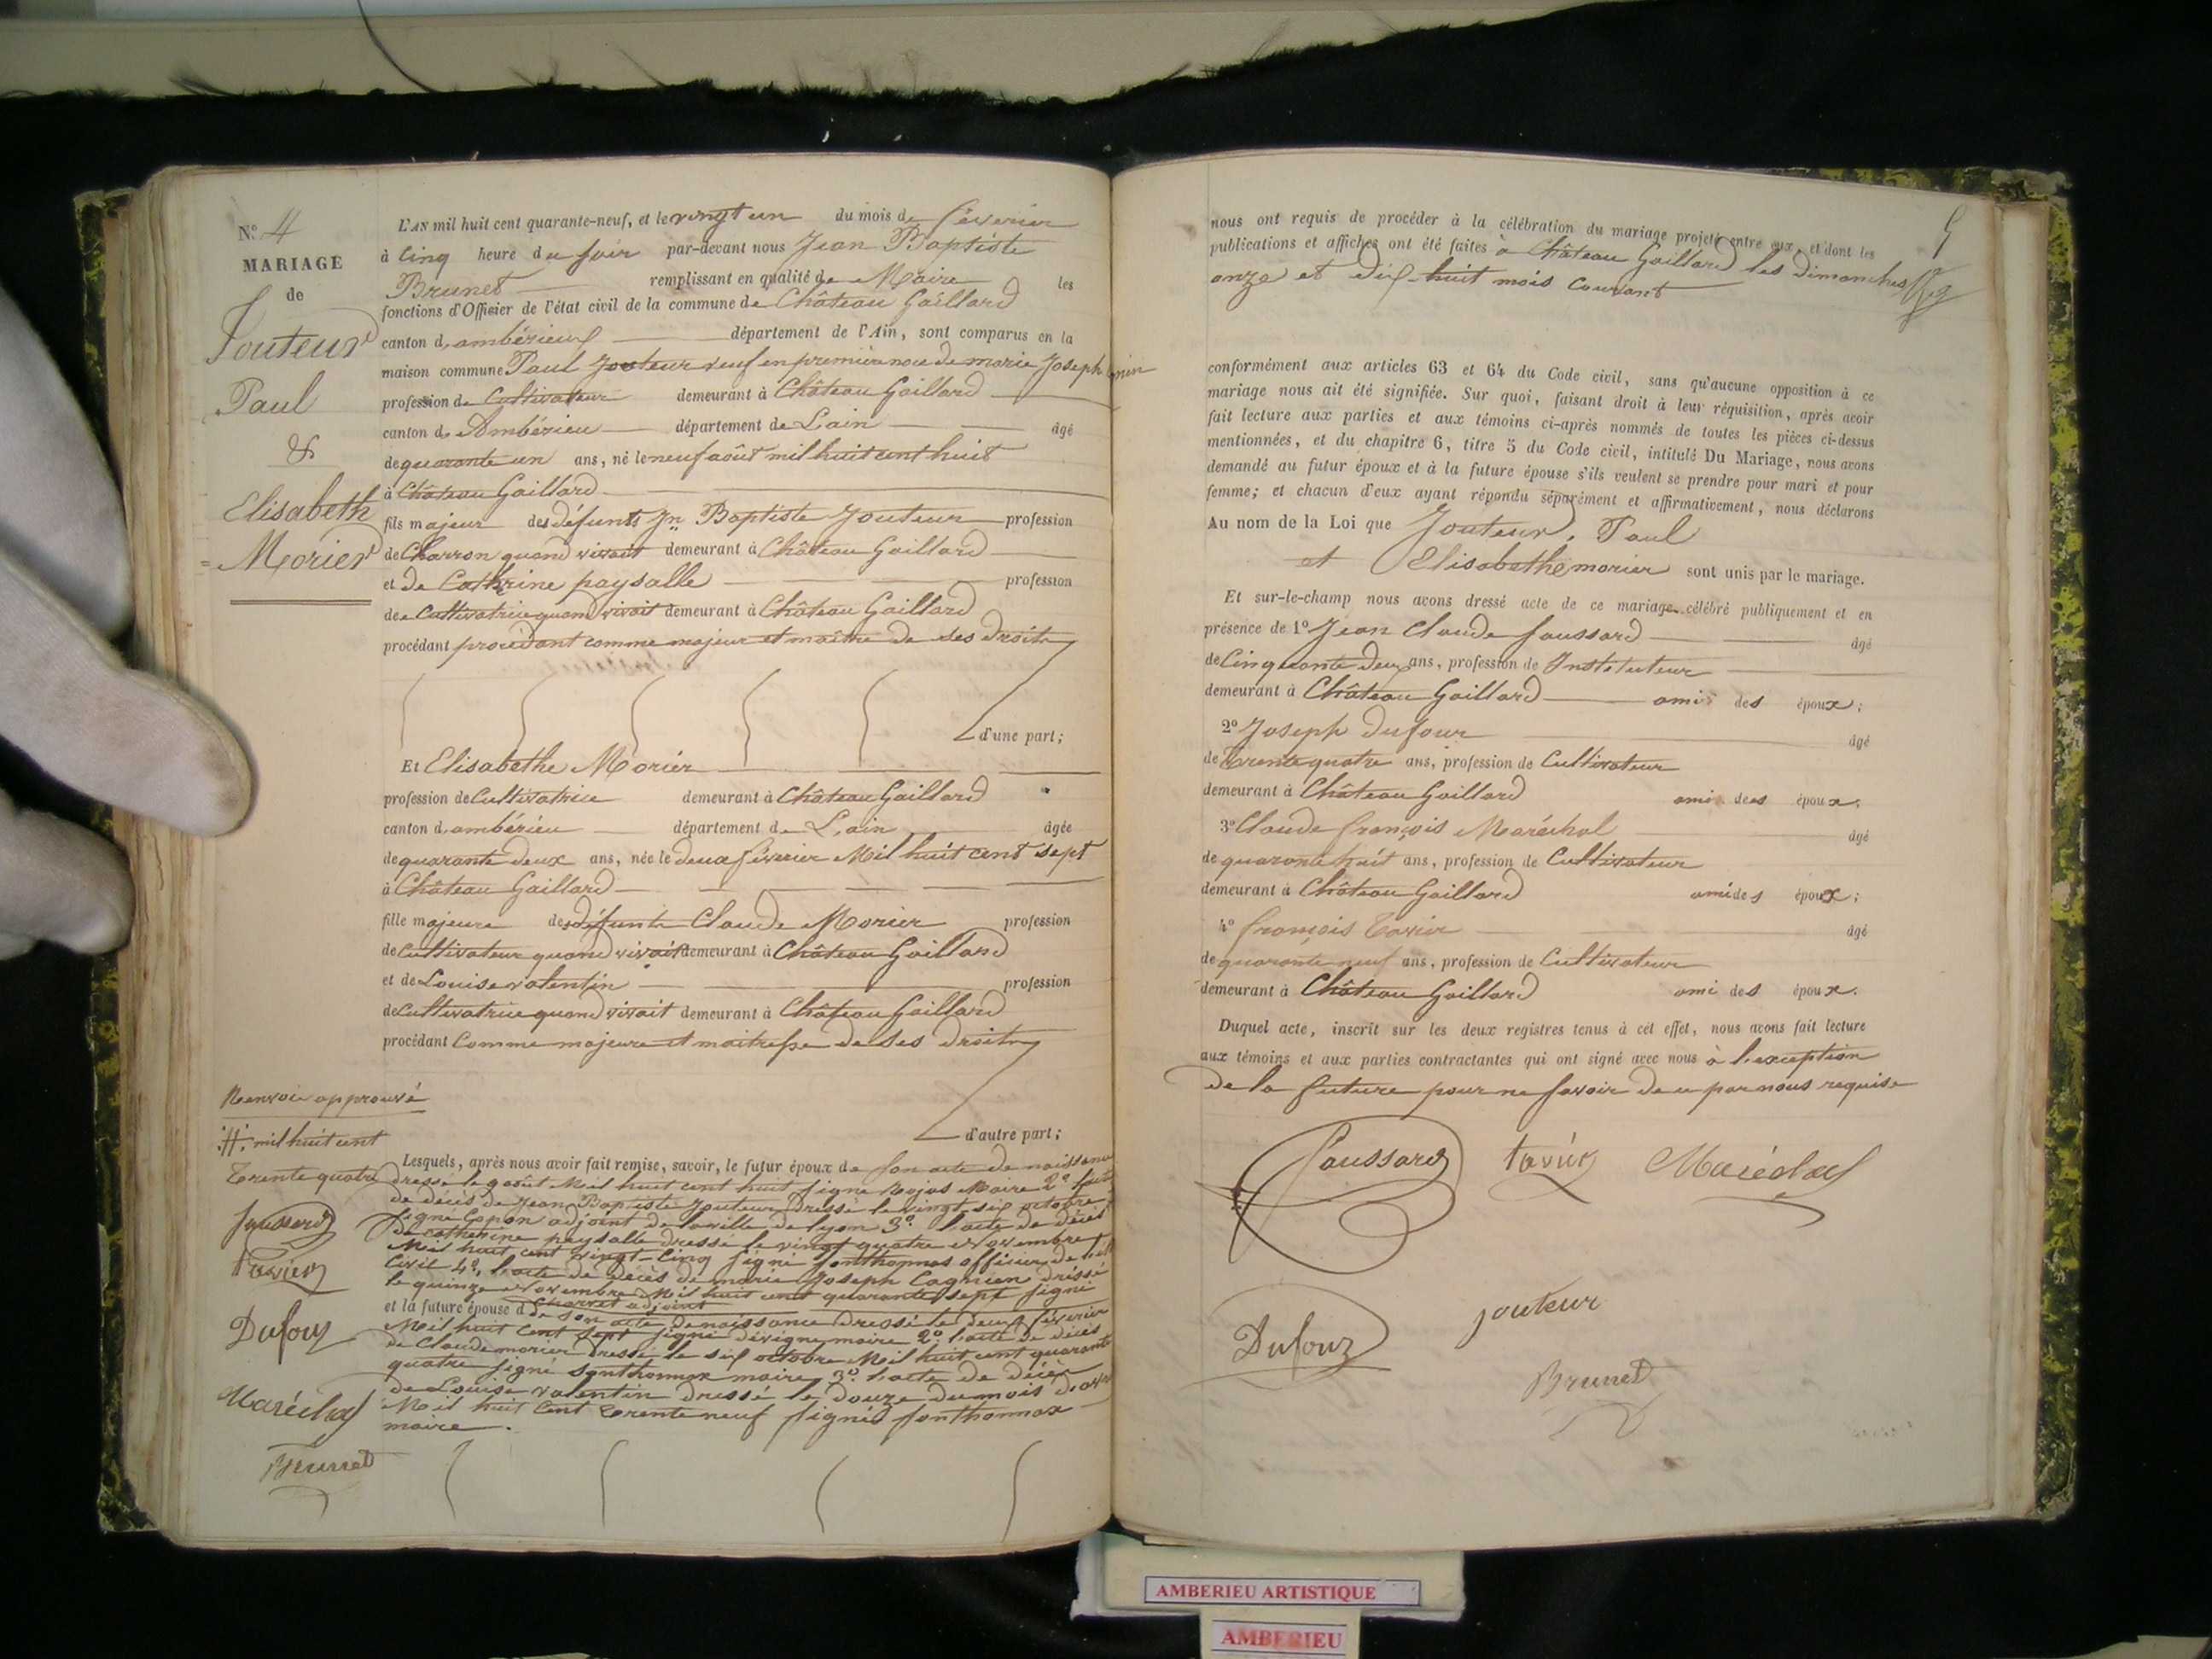 N.° 4
MARIAGE
de
Jouteur
Paul
&
Elisabeth
Morier
L'AN mil huit cent quarante-neuf, et le vingt un du mois de féverier
à Cinq heure du soir par-devant nous Jean Baptiste
Brunet remplissant en qualité de Maire les
fonctions d'Officier de l'état civil de la commune de Château Gaillard
canton d'ambérieux département de l'Ain, sont comparus en la
maison commune Paul Jouteur veuf en première noce de marie Joseph
profession de Cultivateur demeurant à Château Gaillard
canton d'Ambérieu département de L'ain âgé
de quarante un ans, né le neuf août mil huit cent huit
à Château Gaillard
fils majeur des défunts Jn Baptiste Jouteur profession
de Charron quand vivait demeurant à Château Gaillard
et de Cathrine paysalle profession
de Cultivatrice quand vivait demeurant à Château Gaillard
procédant procédant comme majeur et maître de ses droits
d'une part;
Et Elisabethe Morier
profession de Cultivatrice demeurant à Château Gaillard
canton d'ambérieu département de L'ain âgée
de quarante deux ans, née le deux féverier Mil huit cent sept
à Château Gaillard
fille majeure des défunts Claude Morier profession
de Cultivateur quand vivait demeurant à Château Gaillard
et de Louise valentin profession
de Cultivatrice quand vivait demeurant à Château Gaillard
procédant Comme majeure et maitresse de ses droits
d'autre part;
Renvoie approuvé
.H. mil huit cent
Trente quatre
Faussard
Tavier
Dufour
Maréchal
Brunet
Lesquels, après nous avoir fait remise, savoir, le futur époux de son acte de naissance
dressé le 9 août Mil huit cent huit signé Maire 2° l'acte
de décès de Jean Baptiste Jouteur dressé le vingt six octobre
signé adjoint de la ville de lyon 3° l'acte de décès
de cathrine paysalle dressé le vingt quatre Novembre
Mil huit cent vingt-Cinq signé sonthonnax officier de
Civil 4° l'acte de décès de marie Joseph Cagnien dréssé
le quinze Novembre Mil huit cent quarante sept signé
Charvet adjoint
et la future épouse d de son acte de naissance dressé le deux féverier
Mil huit Cent sept signé dévigne maire 2° l'acte de décès
de Claude morier dressé le six octobre Mil huit cent quarante
quatre signé sonthonnax maire 3° l'acte de décès
de Louise valentin dressé le douze du mois
Mil huit Cent trente neuf signé sonthonnax
maire.
5
nous ont requis de procéder à la célébration du mariage projeté entre eux, et dont les
publications et affiches ont été faites à Château Gaillard les dimanches
onze et dix-huit mois courant
conformément aux articles 63 et 64 du Code civil, sans qu'aucune opposition à ce
mariage nous ait été signifiée. Sur quoi, faisant droit à leur réquisition, après avoir
fait lecture aux parties et aux témoins ci-après nommés de toutes les pièces ci-dessus
mentionnées, et du chapitre 6, titre 5 du Code civil, intitulé Du Mariage, nous avons
demandé au futur époux et à la future épouse s'ils veulent se prendre pour mari et pour
femme; et chacun d'eux ayant répondu séparément et affirmativement, nous déclarons
Au nom de la Loi que Jouteur, Paul
et Elisabethe morier sont unis par le mariage.
Et sur-le-champ nous avons dressé acte de ce mariage célébré publiquement et en
présence de 1° Jean Claude faussard âgé
de Cinquante deux ans, profession de Instituteur
demeurant à Château Gaillard ami des époux;
2° Joseph Dufour âgé
de Trente quatre ans, profession de Cultivateur
demeurant à Château Gaillard ami des époux;
3° Claude françois Maréchal âgé
de quarante huit ans, profession de Cultivateur
demeurant à Château Gaillard ami des époux;
4° françois Tavier âgé
de quarante neuf ans, profession de Cultivateur
demeurant à Château Gaillard ami des époux.
Duquel acte, inscrit sur les deux registres tenus à cet effet, nous avons fait lecture
aux témoins et aux parties contractantes qui ont signé avec nous à l'exception
de la future pour ne savoir de ce par nous requise
Faussard Tavier Maréchal
Dufour Jouteur
Brunet
AMBERIEU ARTISTIQUE
AMBERIEU